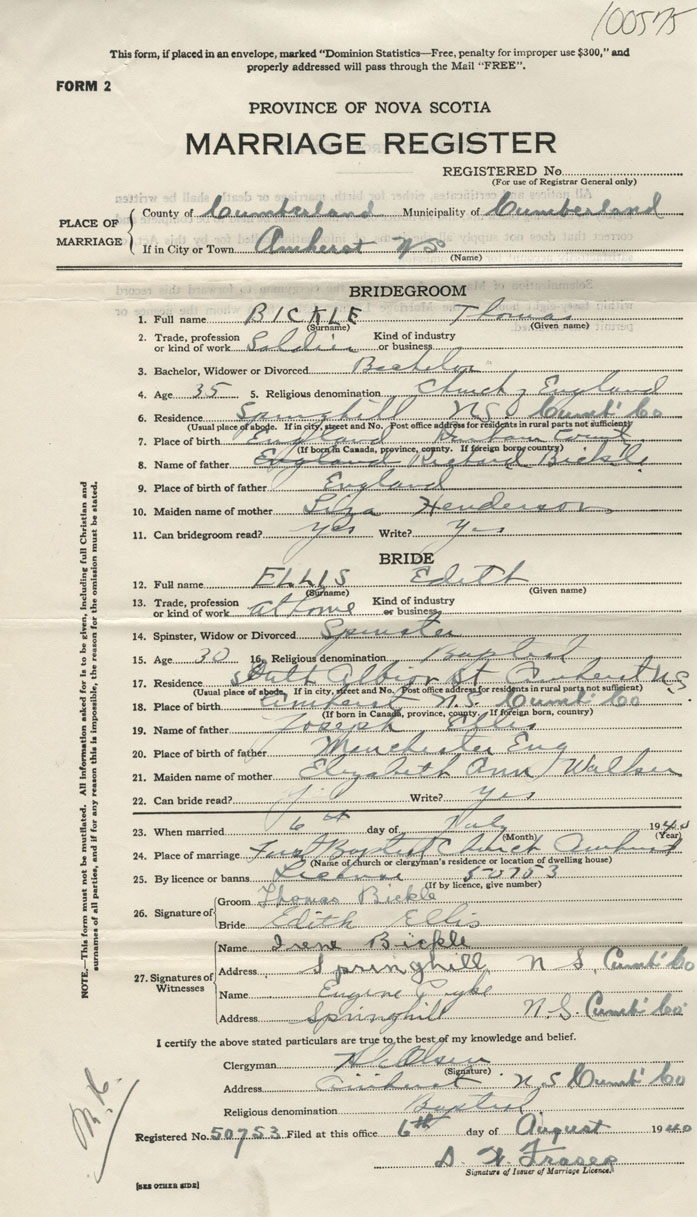 100575
This form, if placed in an envelope, marked "Dominion Statistics—Free, penalty for improper use $300," and
properly addressed will pass through the Mail "FREE".
FORM 2
PROVINCE OF NOVA SCOTIA
MARRIAGE REGISTER
REGISTERED No.
(For use of Registrar General only)
PLACE OF MARRIAGE
County of Cumberland Municipality of Cumberland
If in City or Town Amherst NS
(Name)
BRIDEGROOM
1. Full name BICKLE Thomas
(Surname) (Given name)
2. Trade, profession or kind of work Soldier Kind of industry or business
3. Bachelor, Widower or Divorced Bachelor
4. Age 35 5. Religious denomination Church of England
6. Residence Springhill N.S. Cumb' Co
(Usual place of abode. If in city, street and No. Post office address for residents in rural parts not sufficient)
7. Place of birth England Durham
(If born in Canada, province, county. If foreign born, country)
8. Name of father England Richard Bickle
9. Place of birth of father England
10. Maiden name of mother Henderson
11. Can bridegroom read? yes Write? Yes
BRIDE
12. Full name ELLIS Edith
(Surname) (Given name)
13. Trade, profession or kind of work at home Kind of industry or business
14. Spinster, Widow or Divorced Spinster
15. Age 30 16. Religious denomination Baptist
17. Residence South Albion St Amherst N.S.
(Usual place of abode. If in city, street and No. Post office address for residents in rural parts not sufficient)
18. Place of birth Amherst N.S. Cumb' Co
(If born in Canada, province, county. If foreign born, country)
19. Name of father Joseph Ellis
20. Place of birth of father Manchester Eng
21. Maiden name of mother Elizabeth Ann Walker
22. Can bride read? Write? yes
23. When married 6th day of 1940
(Month) (Year)
24. Place of marriage First Baptist Church Amherst
(Name of church or clergyman's residence or location of dwelling house)
25. By licence or banns License 50753
(If by licence, give number)
26. Signature of
Groom Thomas Bickle
Bride Edith Ellis
27. Signatures of Witnesses
Name Irene Bickle
Address Springhill N S, Cumb' Co
Name Eugene Pyke
Address Springhill N.S. Cumb' Co'
I certify the above stated particulars are true to the best of my knowledge and belief.
Clergyman Olsen
(Signature)
Address Amherst N.S Cumb' Co
Religious denomination Baptist
Registered No. 50753 Filed at this office 6th day of August 1940
Fraser
Signature of Issuer of Marriage Licence.
[SEE OTHER SIDE]
NOTE.—This form must not be mutilated. All information asked for is to be given, including full Christian and
surnames of all parties, and if for any reason this is impossible, the reason for the omission must be stated.